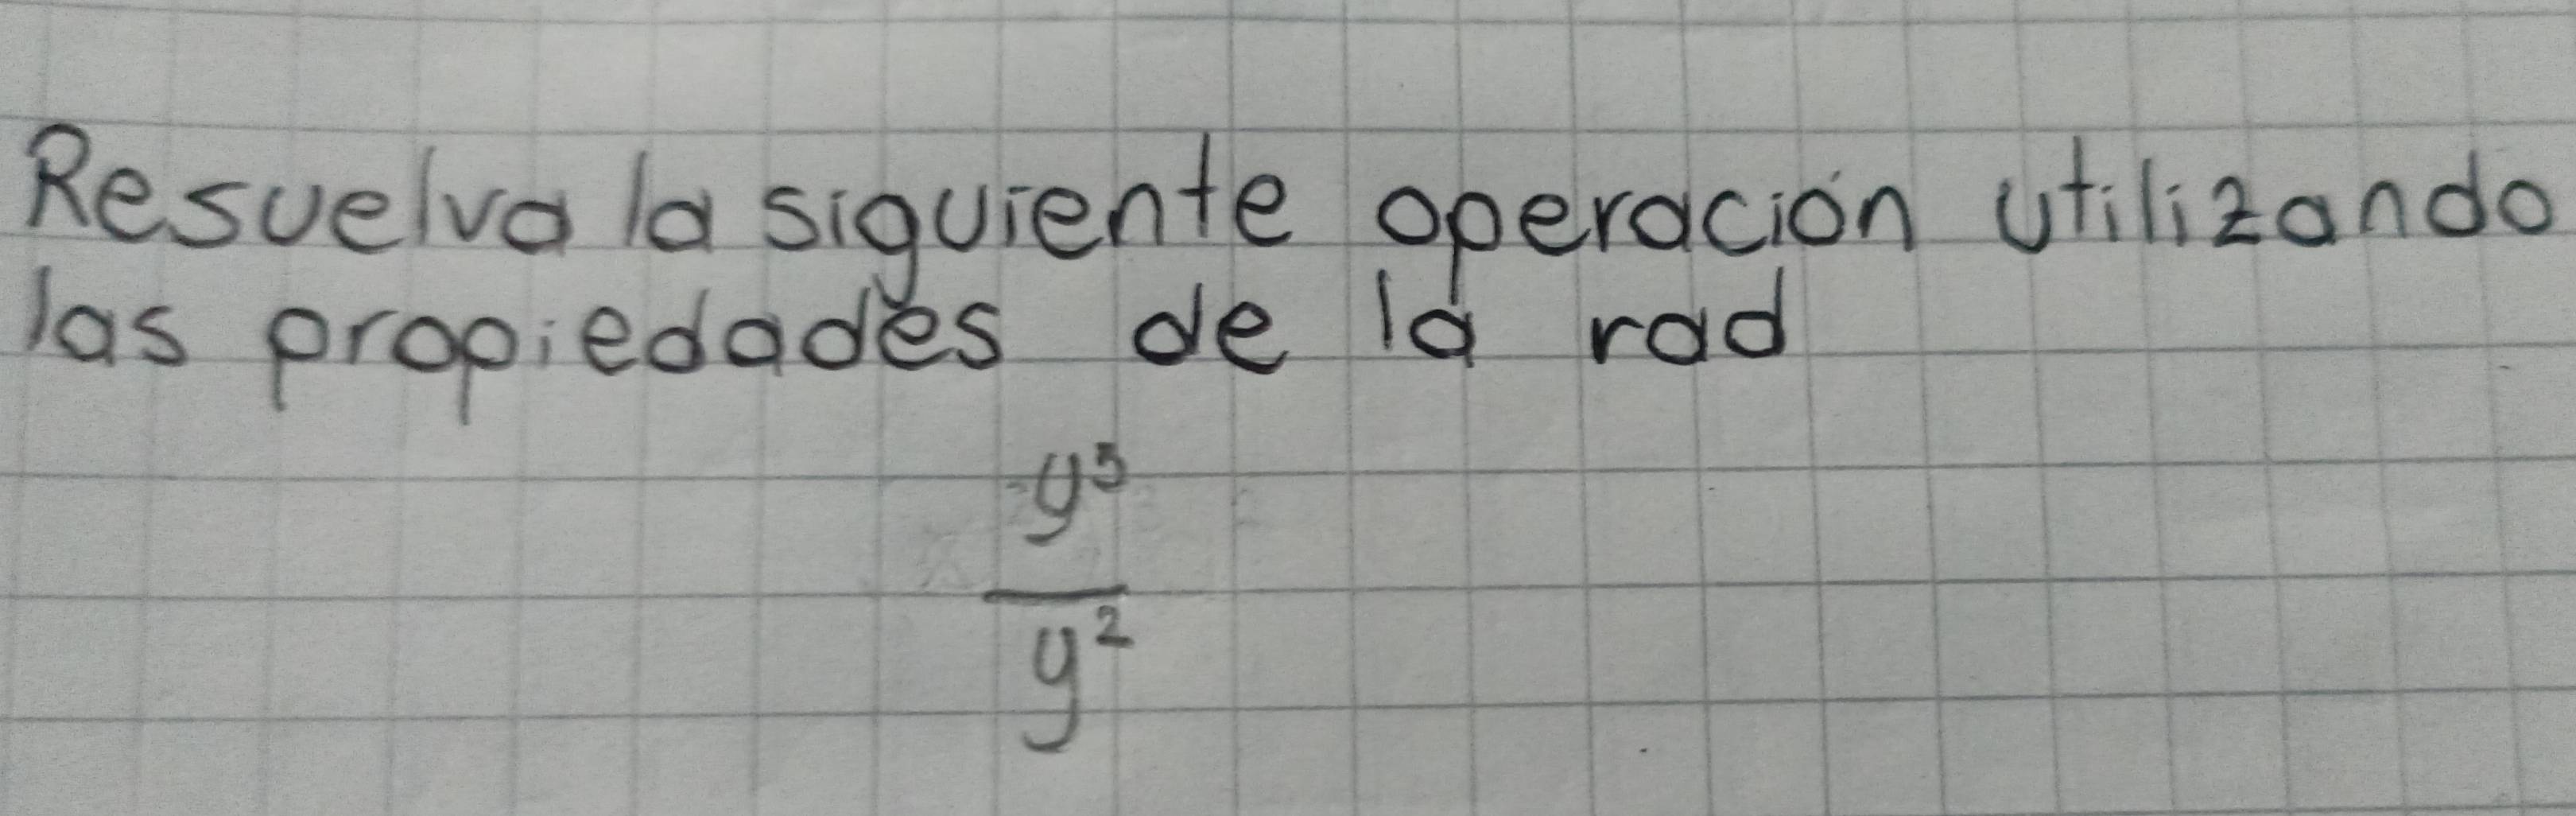 Resuelva la siguiente operación utilizando
las propiedades de la rad
y⁵
y²